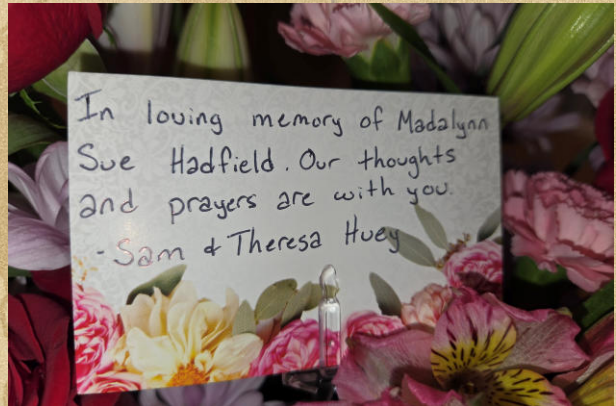 In loving memory of Madalynn
Sue Hadfield. Our thoughts
and prayers are with you.
- Sam & Theresa Huey